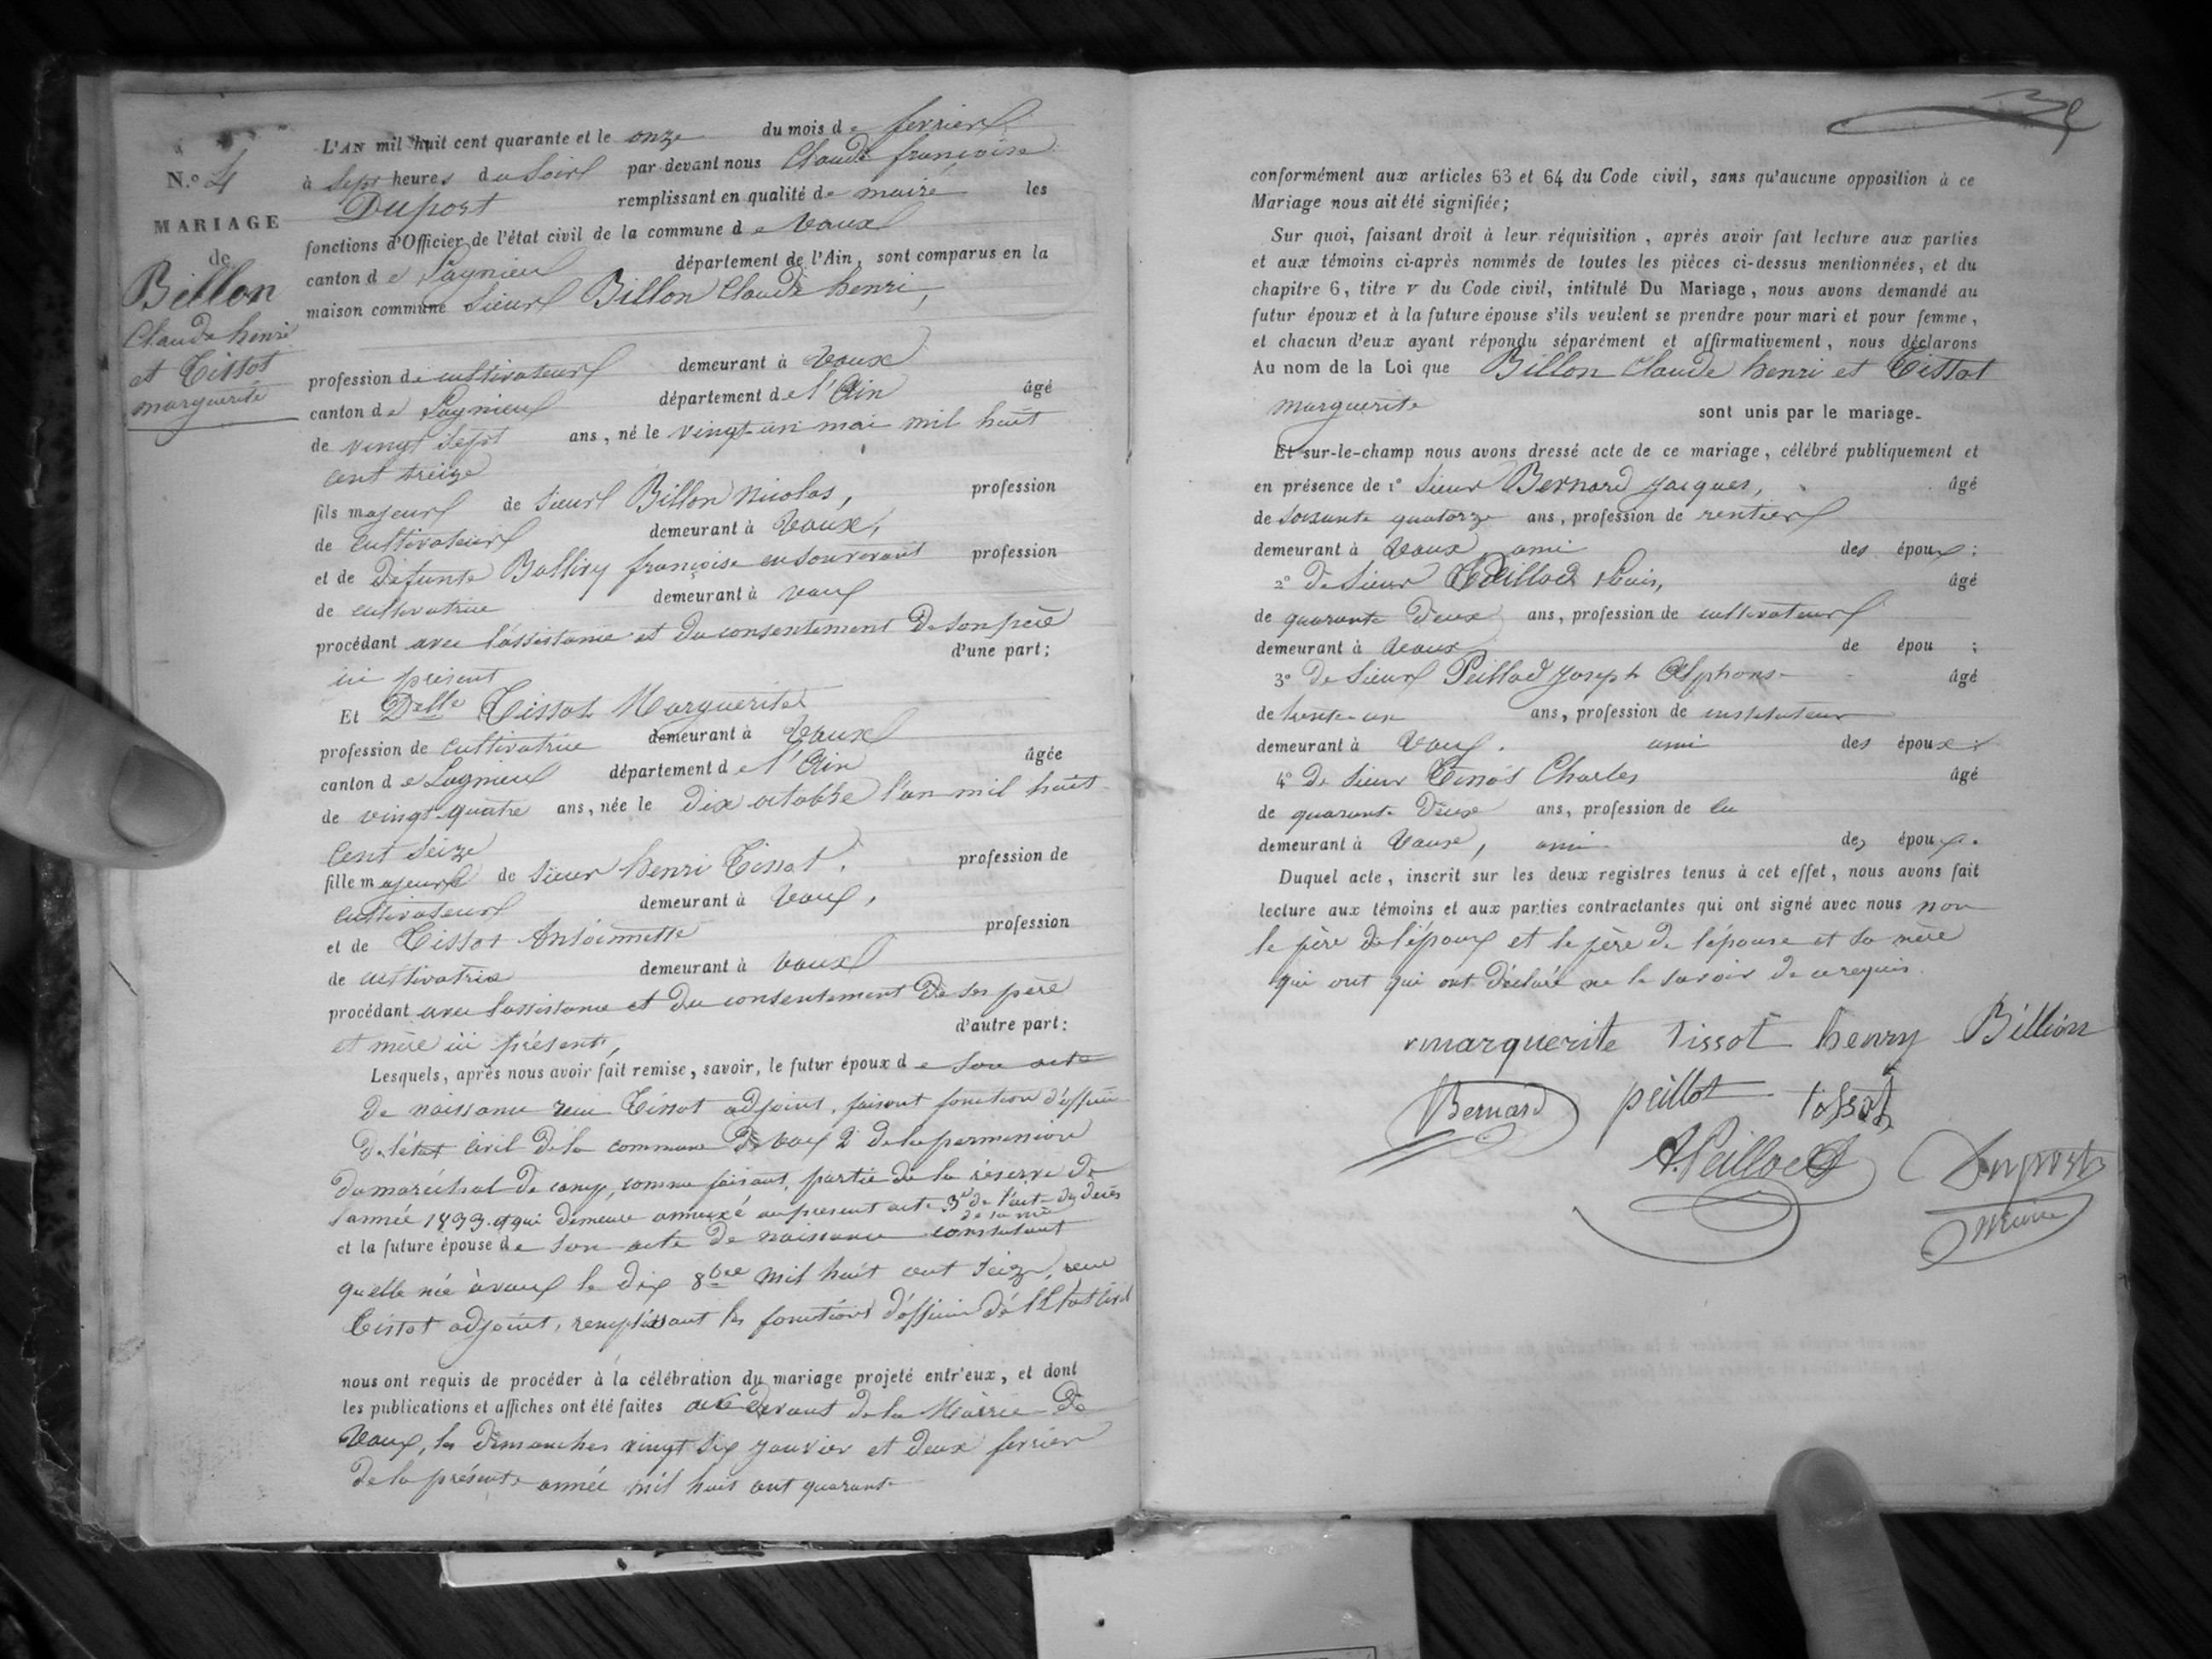 N.o 4
MARIAGE
de
Billon
Claude henri
et Tissot
marguerite
L'AN mil huit cent quarante et le onze du mois de fevrier
à sept heures du soir par devant nous Claude françoise
Duport remplissant en qualité de maire les
fonctions d'Officier de l'état civil de la commune de Vaux
canton de Lagnieu département de l'Ain, sont comparus en la
maison commune sieur Billon Claude henri,
profession de cultivateur demeurant à Vaux
canton de Lagnieu département de l'Ain âgé
de vingt sept ans, né le vingt-un mai mil huit
cent treize
fils majeur de sieur Billon Nicolas, profession
de cultivateur demeurant à Vaux,
et de défunte Ballivy françoise en son vivant profession
de cultivatrice demeurant à Vaux
procédant avec l'assistance et du consentement de son père
d'une part;
ici présent
Et Delle Tissot Marguerite
profession de cultivatrice demeurant à Vaux
canton de Lagnieu département de l'Ain âgée
de vingt-quatre ans, née le dix octobre l'an mil huit
cent seize
fille majeure de sieur henri Tissot, profession de
cultivateur demeurant à Vaux,
et de Tissot Antoinette profession
de cultivatrice demeurant à Vaux
procédant avec l'assistance et du consentement de ses père
d'autre part:
et mère ici présents,
Lesquels, après nous avoir fait remise, savoir, le futur époux de son acte
de naissance reçu Tissot adjoint, faisant fonction d'officier
de l'état civil de la commune de Vaux 2° de la permission
du maréchal de camp, comme faisant partie de la réserve de
l'année 1833 et qui demeure annexé au present acte 3° de l'acte de décès
de sa mère
et la future épouse de son acte de naissance constatant
quelle née à Vaux le dix 8bre mil huit cent seize, reçu
Tissot adjoint, remplissant les fonctions d'officier de l'Etat civil
nous ont requis de procéder à la célébration du mariage projeté entr'eux, et dont
les publications et affiches ont été faites devant de la Mairie de
Vaux, les dimanches vingt six janvier et deux fevrier
de la présente année mil huit cent quarante
conformément aux articles 63 et 64 du Code civil, sans qu'aucune opposition à ce
Mariage nous ait été signifiée;
Sur quoi, faisant droit à leur réquisition, après avoir fait lecture aux parties
et aux témoins ci-après nommés de toutes les pièces ci-dessus mentionnées, et du
chapitre 6, titre V du Code civil, intitulé Du Mariage, nous avons demandé au
futur époux et à la future épouse s'ils veulent se prendre pour mari et pour femme,
et chacun d'eux ayant répondu séparément et affirmativement, nous déclarons
Au nom de la Loi que Billon Claude henri et Tissot
marguerite sont unis par le mariage.
Et sur-le-champ nous avons dressé acte de ce mariage, célébré publiquement et
en présence de 1° sieur Bernard Jacques, âgé
de soixante quatorze ans, profession de rentier
demeurant à Vaux ami des époux;
2° de sieur Peillod Louis, âgé
de quarante deux ans, profession de cultivateur
demeurant à Vaux de épou ;
3° de sieur Peillod Joseph Alphonse âgé
de trente-un ans, profession de instituteur
demeurant à Vaux. ami des époux;
4° de sieur Tissot Charles âgé
de quarante deux ans, profession de cu
demeurant à Vaux, ami des époux.
Duquel acte, inscrit sur les deux registres tenus à cet effet, nous avons fait
lecture aux témoins et aux parties contractantes qui ont signé avec nous non
le père de l'époux et le père de l'épouse et sa mère
qui ont qui ont déclaré ne le savoir de ce requis.
marguerite tissot henry Billion
Bernard peillot tissot
A. Peillod Duport
maire